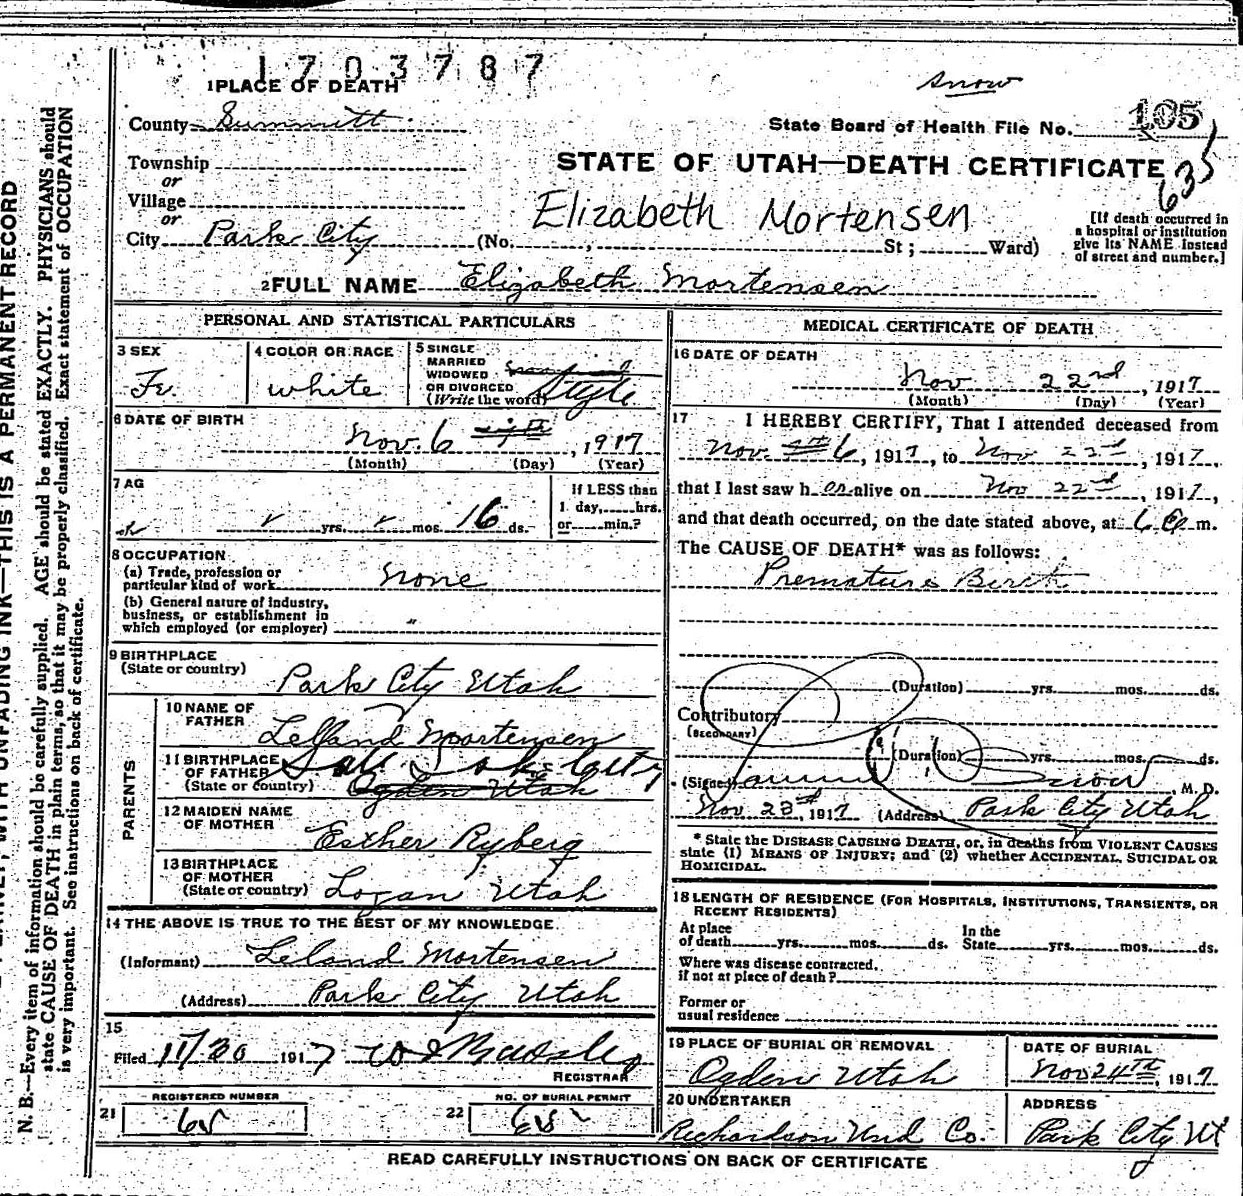 1703787
1 PLACE OF DEATH
Snow
County Summitt
State Board of Health File No. 165
635
Township
or
STATE OF UTAH—DEATH CERTIFICATE
Village
or
Elizabeth Mortensen
City Park City (No. , St; Ward)
[If death occurred in
a hospital or institution
give its NAME instead
of street and number.]
2 FULL NAME Elizabeth Mortensen
PERSONAL AND STATISTICAL PARTICULARS
3 SEX
Fe.
4 COLOR OR RACE
white
5 SINGLE
MARRIED
WIDOWED
OR DIVORCED
(Write the word)
6 DATE OF BIRTH
Nov. 6, 1917
(Month) (Day) (Year)
7 AG
yrs. mos. 16 ds.
If LESS than
1 day, hrs.
or min.?
8 OCCUPATION
(a) Trade, profession or
particular kind of work None
(b) General nature of industry,
business, or establishment in
which employed (or employer) "
9 BIRTHPLACE
(State or country)
Park City Utah
PARENTS
10 NAME OF
FATHER
Lelland Mortensen
11 BIRTHPLACE
OF FATHER
(State or country)
Salt Lake City
Ogden Utah
12 MAIDEN NAME
OF MOTHER
Esther Ryberg
13 BIRTHPLACE
OF MOTHER
(State or country)
Logan Utah
14 THE ABOVE IS TRUE TO THE BEST OF MY KNOWLEDGE
(Informant) Leland Mortensen
(Address) Park City Utah
15
Filed 11/30 1917
REGISTRAR
REGISTERED NUMBER
21 65
NO. OF BURIAL PERMIT
22 65
MEDICAL CERTIFICATE OF DEATH
16 DATE OF DEATH
Nov 22nd, 1917
(Month) (Day) (Year)
17 I HEREBY CERTIFY, That I attended deceased from
Nov. 6, 1917, to Nov 22nd, 1917,
that I last saw her alive on Nov 22nd, 1917,
and that death occurred, on the date stated above, at 6 a m.
The CAUSE OF DEATH* was as follows:
Premature Birth
(Duration) yrs. mos. ds.
Contributory
(SECONDARY)
(Duration) yrs. mos. ds.
(Signed) Snow, M. D.
Nov 23, 1917 (Address) Park City Utah
* State the DISEASE CAUSING DEATH, or, in deaths from VIOLENT CAUSES
state (1) MEANS OF INJURY; and (2) whether ACCIDENTAL, SUICIDAL OR
HOMICIDAL.
18 LENGTH OF RESIDENCE (FOR HOSPITALS, INSTITUTIONS, TRANSIENTS, OR
RECENT RESIDENTS)
At place
of death yrs. mos. ds.
In the
State yrs. mos. ds.
Where was disease contracted,
if not at place of death?
Former or
usual residence
19 PLACE OF BURIAL OR REMOVAL
Ogden Utah
DATE OF BURIAL
Nov 24TH, 1917
20 UNDERTAKER
Richardson Und Co.
ADDRESS
Park City Ut
READ CAREFULLY INSTRUCTIONS ON BACK OF CERTIFICATE
WITH UNFADING INK—THIS IS A PERMANENT RECORD
N. B.—Every item of information should be carefully supplied. AGE should be stated EXACTLY. PHYSICIANS should
state CAUSE OF DEATH in plain terms, so that it may be properly classified. Exact statement of OCCUPATION
is very important. See instructions on back of certificate.